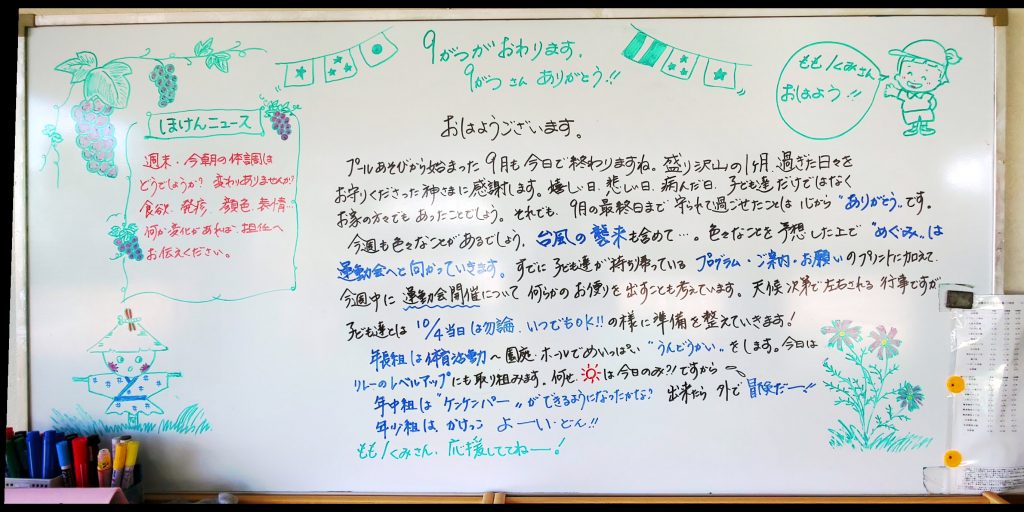 9がつがおわります。
9がつさんありがとう!!
もも1くみさん
おはよう!!
ほけんニュース
週末・今朝の体調は
どうでしょうか? 変わりありませんか?
食欲、発疹、顔色、表情…
何か変化があれば、担任へ
お伝えください。
おはようございます。
プールあそびから始まった9月も今日で終わりますね。盛り沢山の1ヶ月、過ぎた日々を
お守りくださった神さまに感謝します。嬉しい日、悲しい日、病んだ日、子ども達だけではなく
お家の方々でもあったことでしょう。それでも、9月の最終日まで守られて過ごせたことは心から“ありがとう”です。
今週も色々なことがあるでしょう。台風の襲来も含めて…。色々なことを予想した上で“めぐみ”は
運動会へと向かっていきます。すでに子ども達が持ち帰っているプログラム・ご案内・お願いのプリントに加えて、
今週中に運動会開催について何らかのお便りを出すことも考えています。天候次第で左右される行事ですが
子ども達とは10/4当日は勿論、いつでもOK!!の様に準備を整えていきます!
年長組は体育活動〜園庭・ホールでめいっぱい“うんどうかい”をします。今日は
リレーのレベルアップにも取り組みます。何せ、は今日のみ?!ですから〜
年中組は“ケンケンパー”ができるようになったかな? 出来たら外で冒険だー!!
年少組は、かけっこ よーい・どん!!
もも1くみさん、応援しててねー!